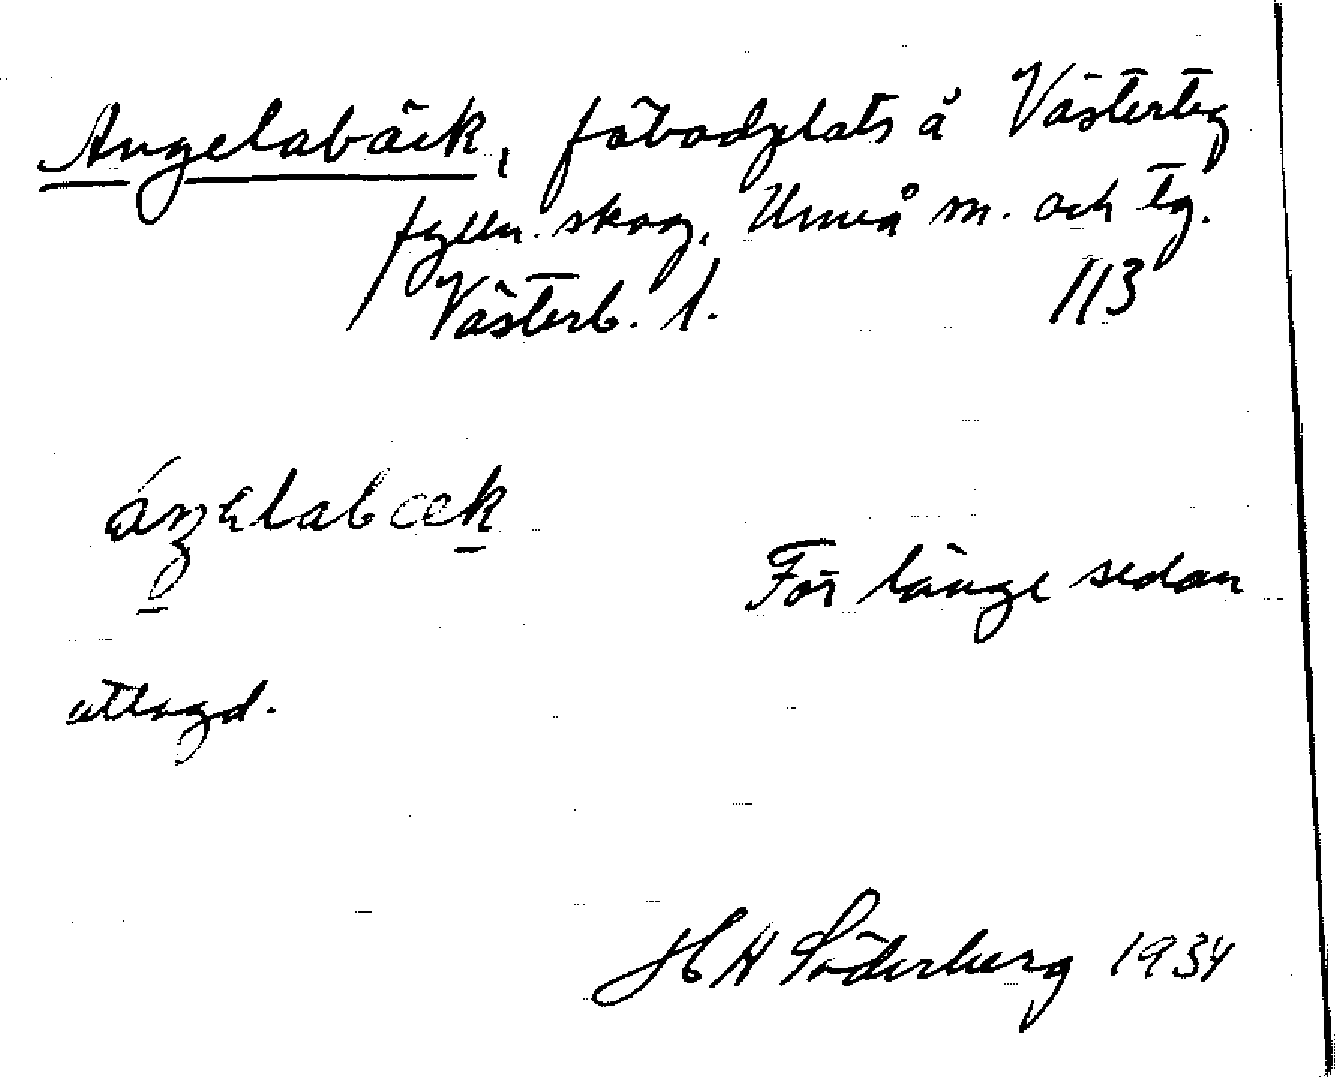 Angelabäck, fäbodplats å Västerteg
skog, Umeå m. och tg.
Västerb. l. 113
För länge sedan
utlagd.
H Söderberg 1934